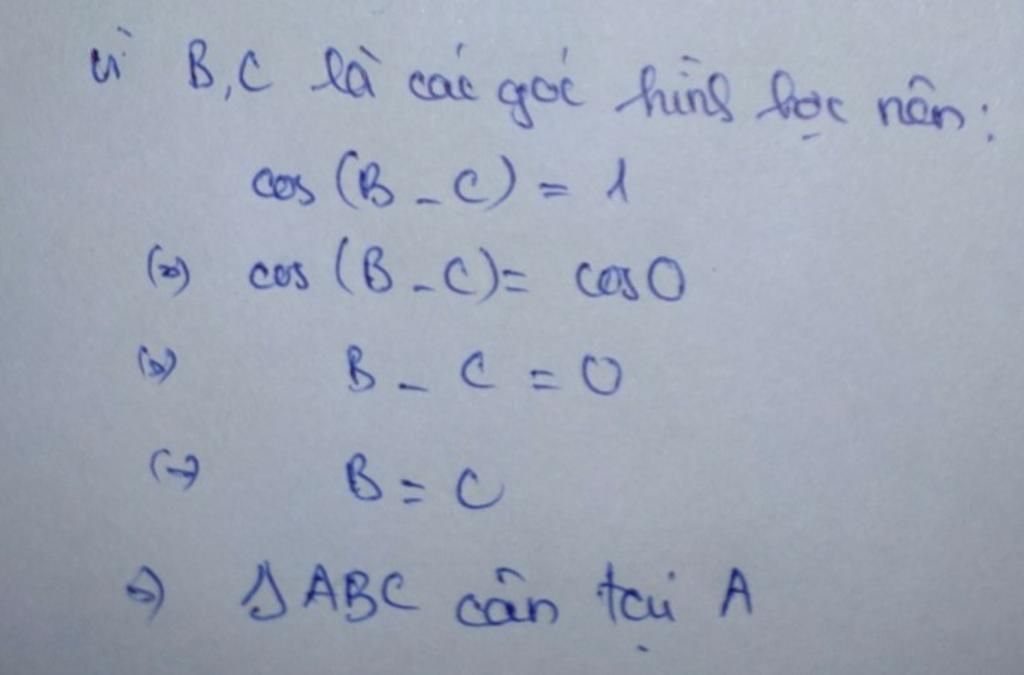 Vì B, C là các góc hình học nên:
cos (B - C) = 1
(=) cos (B - C) = cos 0
(=) B - C = 0
(=) B = C
=) Δ ABC cân tại A